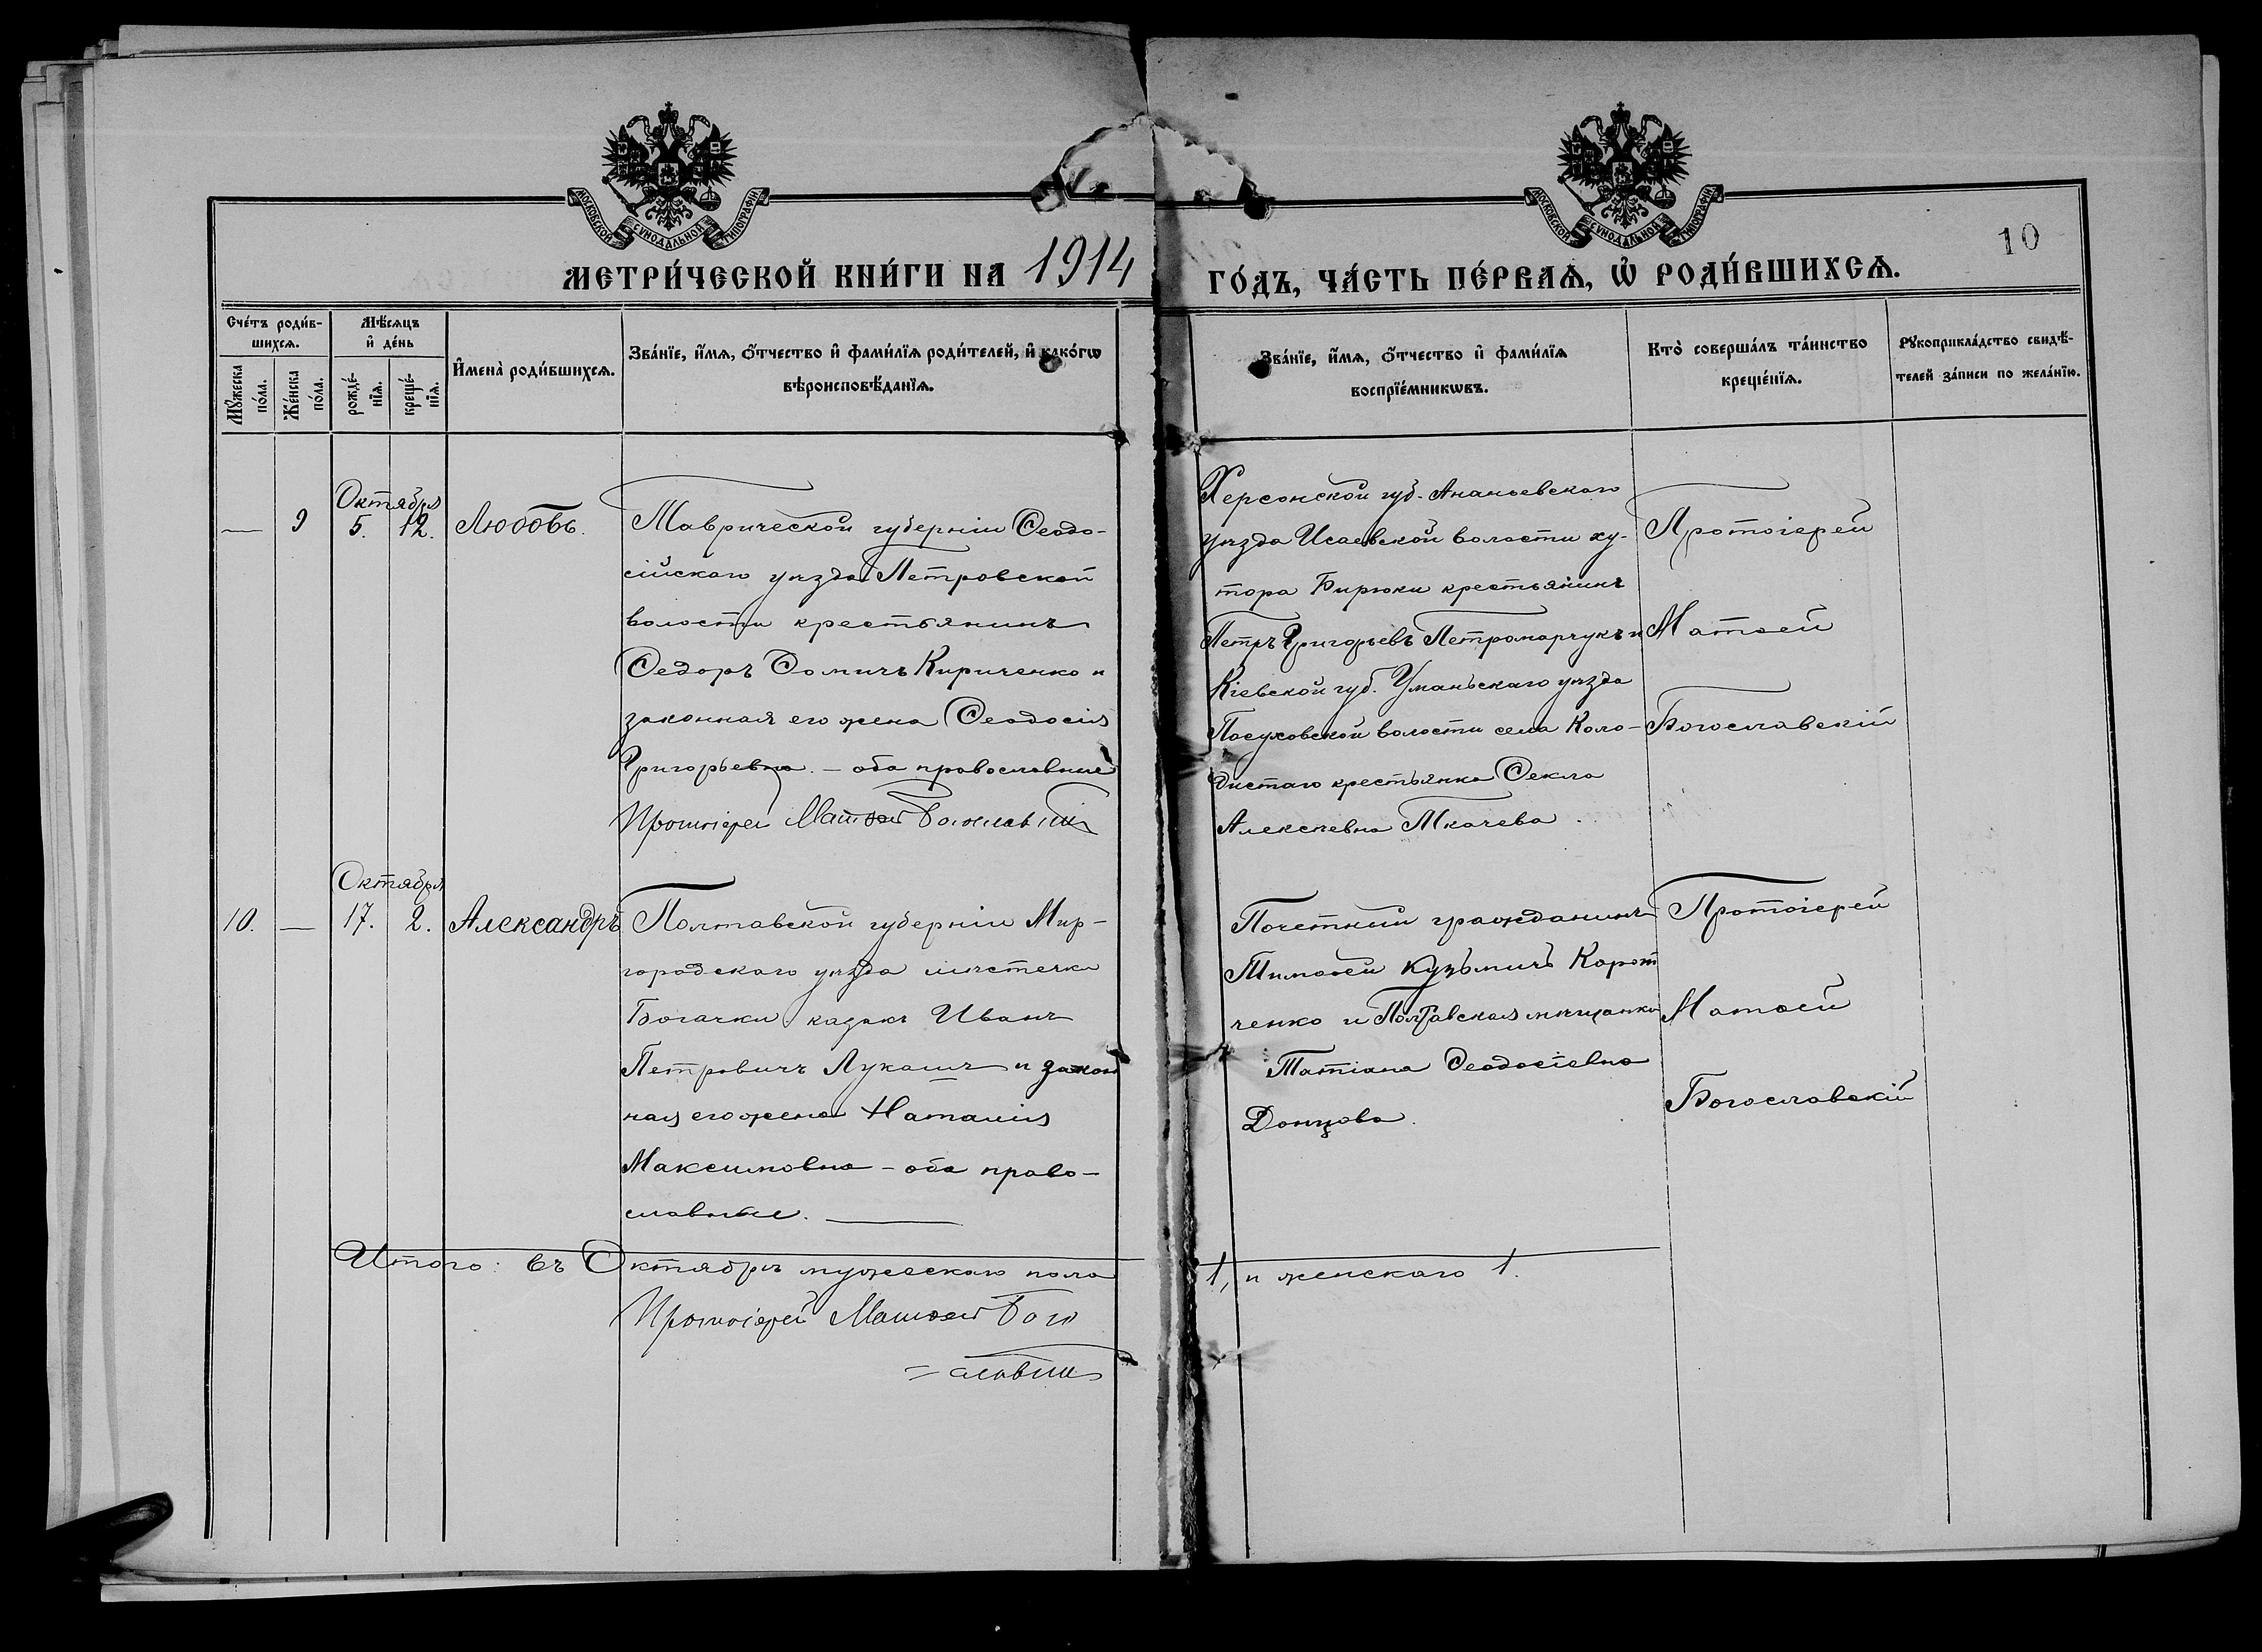 МОСКОВСКОЙ СѴНОДАЛЬНОЙ ТИПОГРАФІИ
МОСКОВСКОЙ СѴНОДАЛЬНОЙ ТИПОГРАФІИ
10
МЕТРИ́ЧЕСКОЙ КНИ́ГИ НА 1914 ГО́ДЪ, ЧА́СТЬ ПЕ́РВАѦ, Ѡ҆ РОДИ́ВШИХСѦ.
Сче́тъ роди́в-
шихсѧ.
Мꙋ́жеска
по́ла.
Же́нска
по́ла.
Мѣ́сѧцъ
и҆ де́нь
рожде́-
нїѧ.
креще́-
нїѧ.
И҆мена̀ роди́вшихсѧ.
Зва́нїе, и҆́мѧ, ѻ҆́тчество и҆ фами́лїѧ роди́телей, и҆ како́гѡ
вѣроисповѣ́данїѧ.
Зва́нїе, и҆́мѧ, ѻ҆́тчество и҆ фами́лїѧ
воспрїе́мникѡвъ.
Кто̀ соверша́лъ та́инство
креще́нїѧ.
Рꙋкоприкла́дство свидѣ́-
телей за́писи по жела́нїю.
Октября
— 9 5. 12. Любовь.
Таврической губерніи Ѳеодо-
сійскаго уѣзда Петровской
волости крестьянинъ
Ѳедоръ Ѳомичъ Кириченко и
законная его жена Ѳеодосія
Григорьевна. – оба православные
Протоіерей Матѳей Богославскій
Херсонской губ. Ананьевскаго
уѣзда Исаевской волости ху-
тора Бирюки крестьянинъ
Петръ Григорьевъ Петромарчукъ и
Кіевской губ. Уманьскаго уѣзда
Посуховской волости села Коло-
дистаго крестьянка Ѳекла
Алексѣевна Ткачева.
Протоіерей
Матѳей
Богославскій
Октября
10. — 17. 2. Александръ
Полтавской губерніи Мир-
городскаго уѣзда мѣстечка
Богачки казакъ Иванъ
Петровичъ Лукашъ и закон
ная его жена Наталія
Максимовна – оба право-
славные.
Почетный гражданинъ
Тимоѳей Кузьмичъ Корот
ченко и Полтавская мѣщанка
Татіана Ѳеодосіевна
Донцова.
Протоіерей
Матѳей
Богославскій
Итого: въ Октябрѣ мужескаго пола 1, и женскаго 1.
Протоіерей Матѳей Бого
= славскій